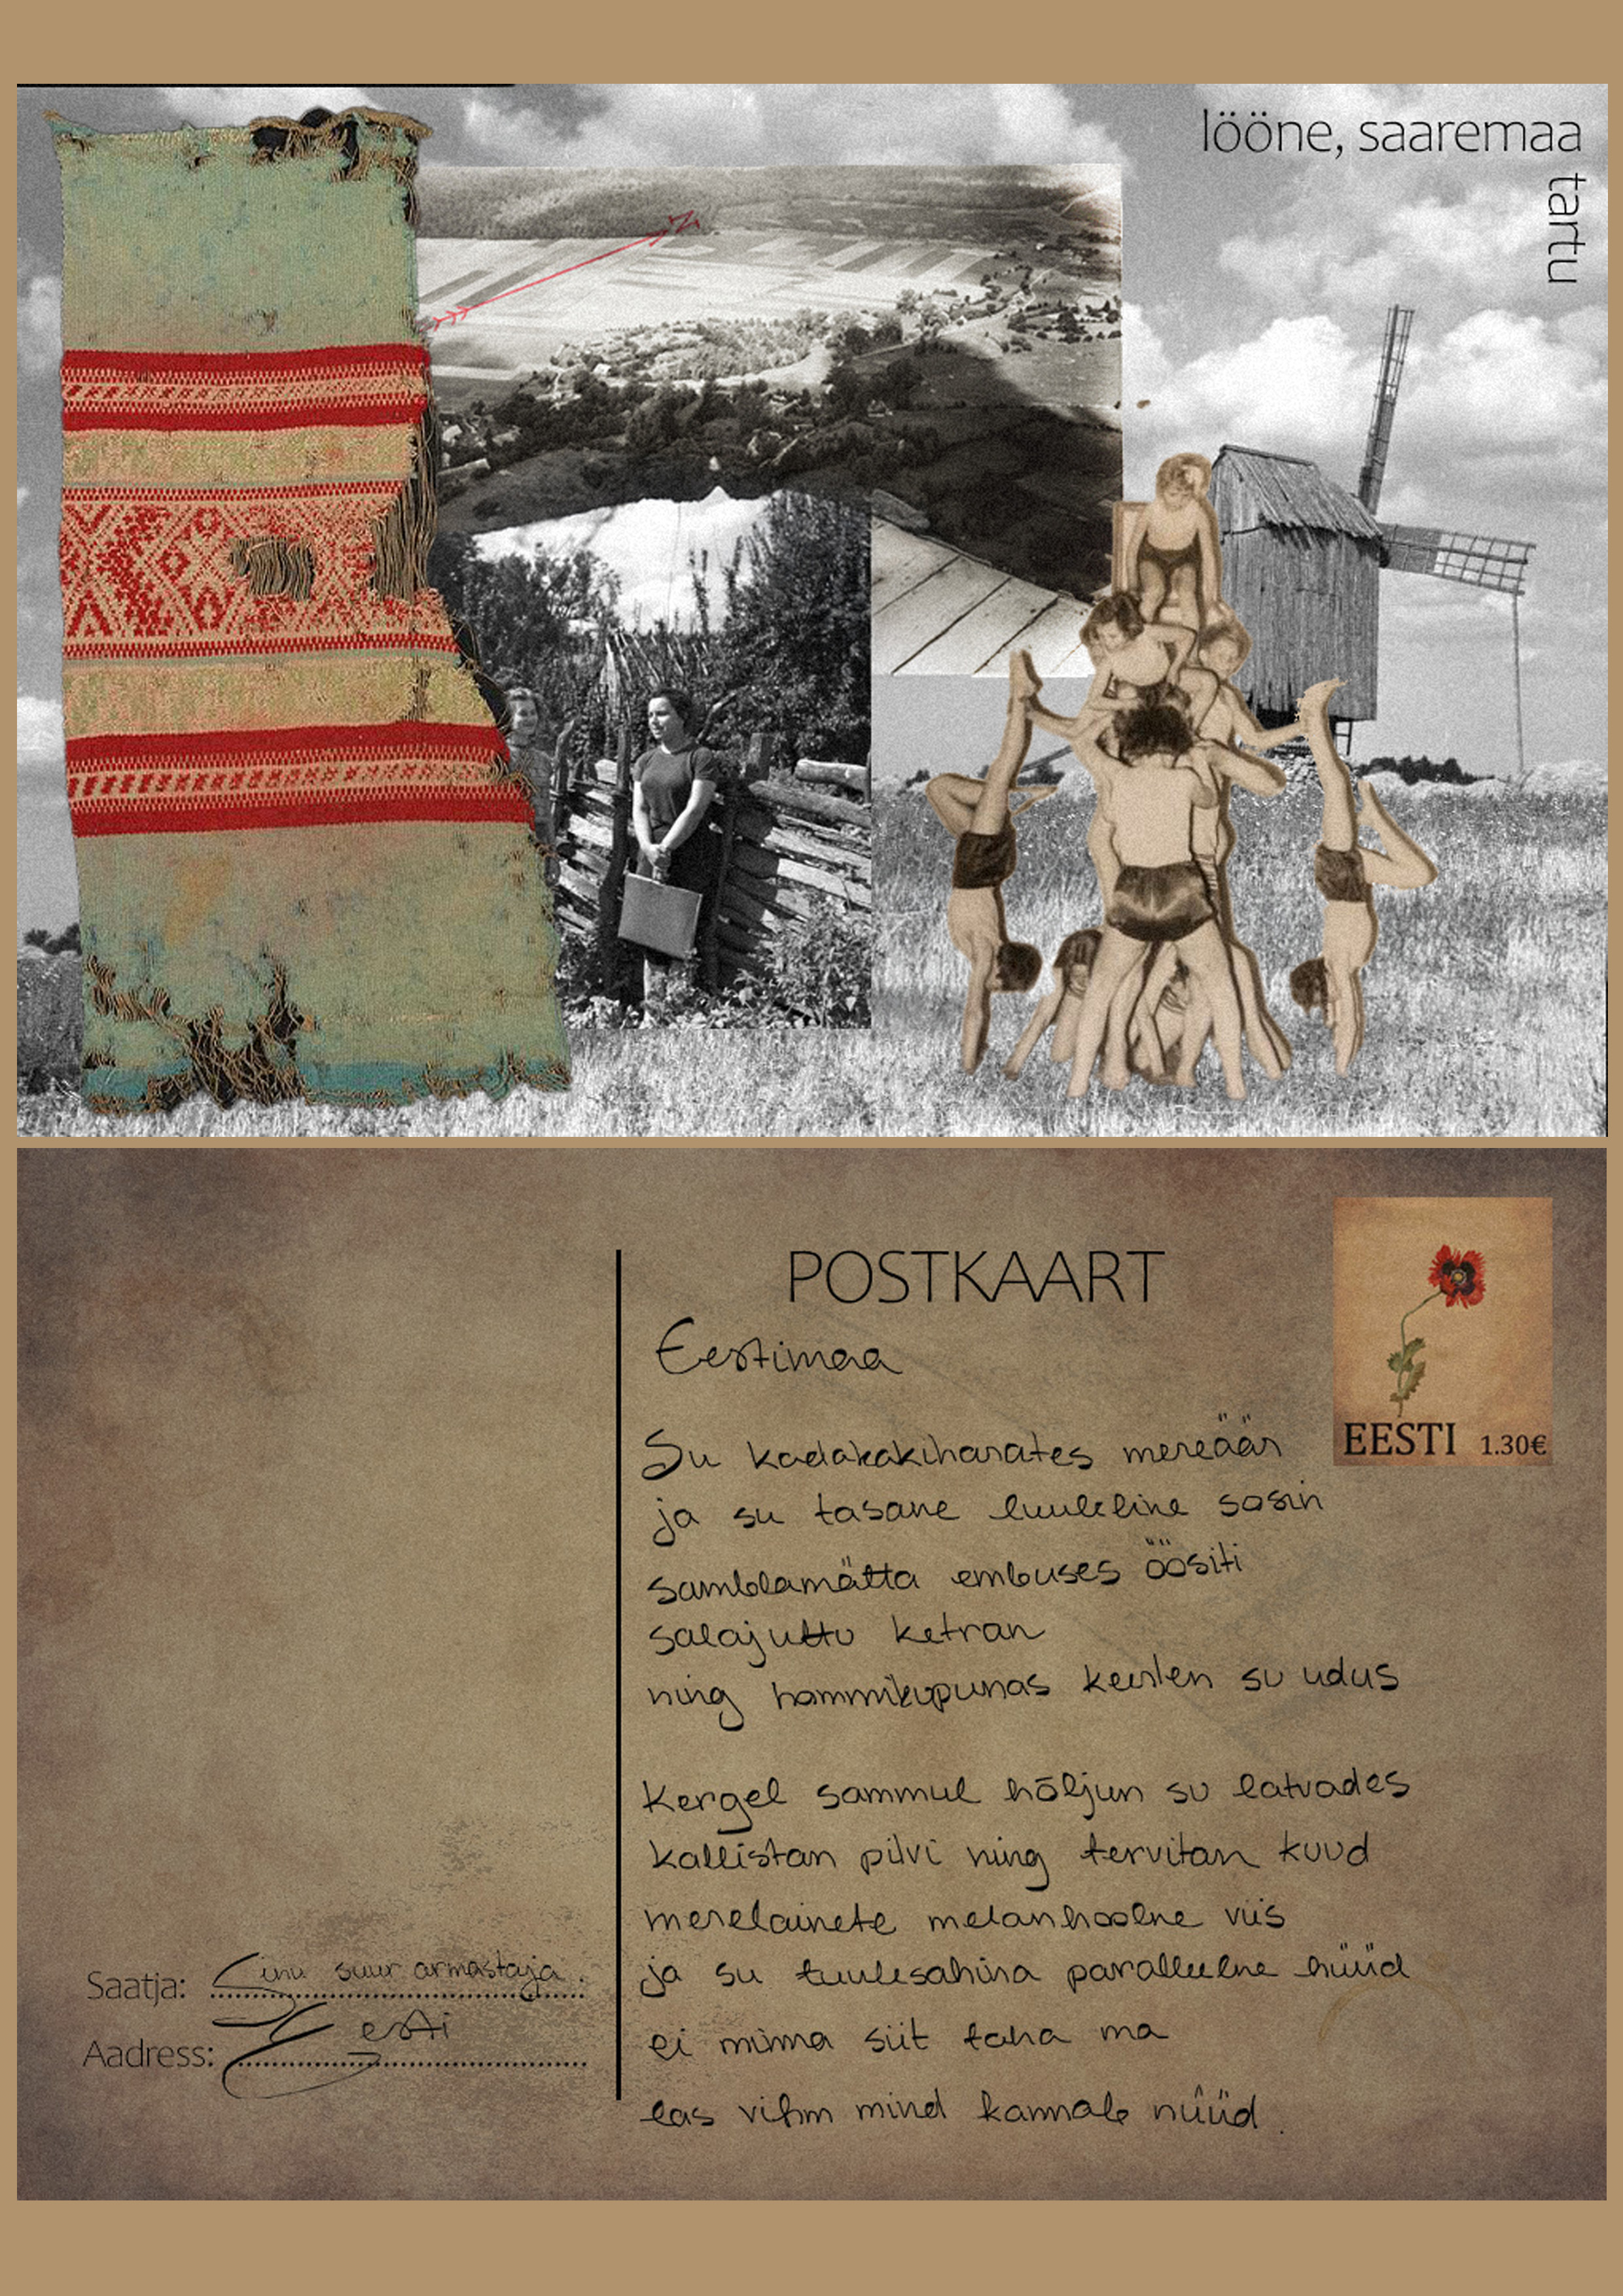 lööne, saaremaa
tartu
POSTKAART
EESTI 1.30€
Eestimaa
Su kadakakiharates mereäär
ja su tasane luuleline sosin
samblamätta embuses öösiti
salajuttu ketran
ning hommikupunas keerlen su udus
Kergel sammul hõljun su latvades
kallistan pilvi ning tervitan kuud
merelainete melanhoolne viis
ja su tuulesahina paralleelne hüüd
ei mima siit taha ma
las vihm mind kannab nüüd.
Saatja: Sinu suur armastaja.
Aadress: Eesti